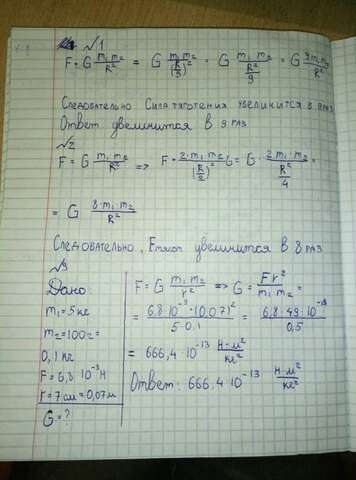 √1
F = G m₁m₂/R² = G m₁m₂/(R/3)² = G m₁m₂/(R²/9) = G 9m₁m₂/R²
Следовательно Сила тяготения увеличится в 9 раз
Ответ увеличится в 9 раз
√2
F = G m₁m₂/R² => F = 2·m₁m₂/(R/2)² G = G · 2m₁·m₂/(R²/4) =
= G 8·m₁m₂/R²
Следовательно, Fтягот увеличится в 8 раз
√3
Дано:
m₁=5кг
m₂=100г=
0,1 кг
F=6,8·10⁻⁹Н
r=7см=0,07м
G=?
F=G m₁m₂/r² => G = Fr²/m₁m₂ =
= 6,8·10⁻⁹·(0,07)²/5·0,1 = 6,8·49·10⁻¹³/0,5
= 666,4·10⁻¹³ Н·м²/кг²
Ответ: 666,4·10⁻¹³ Н·м²/кг²